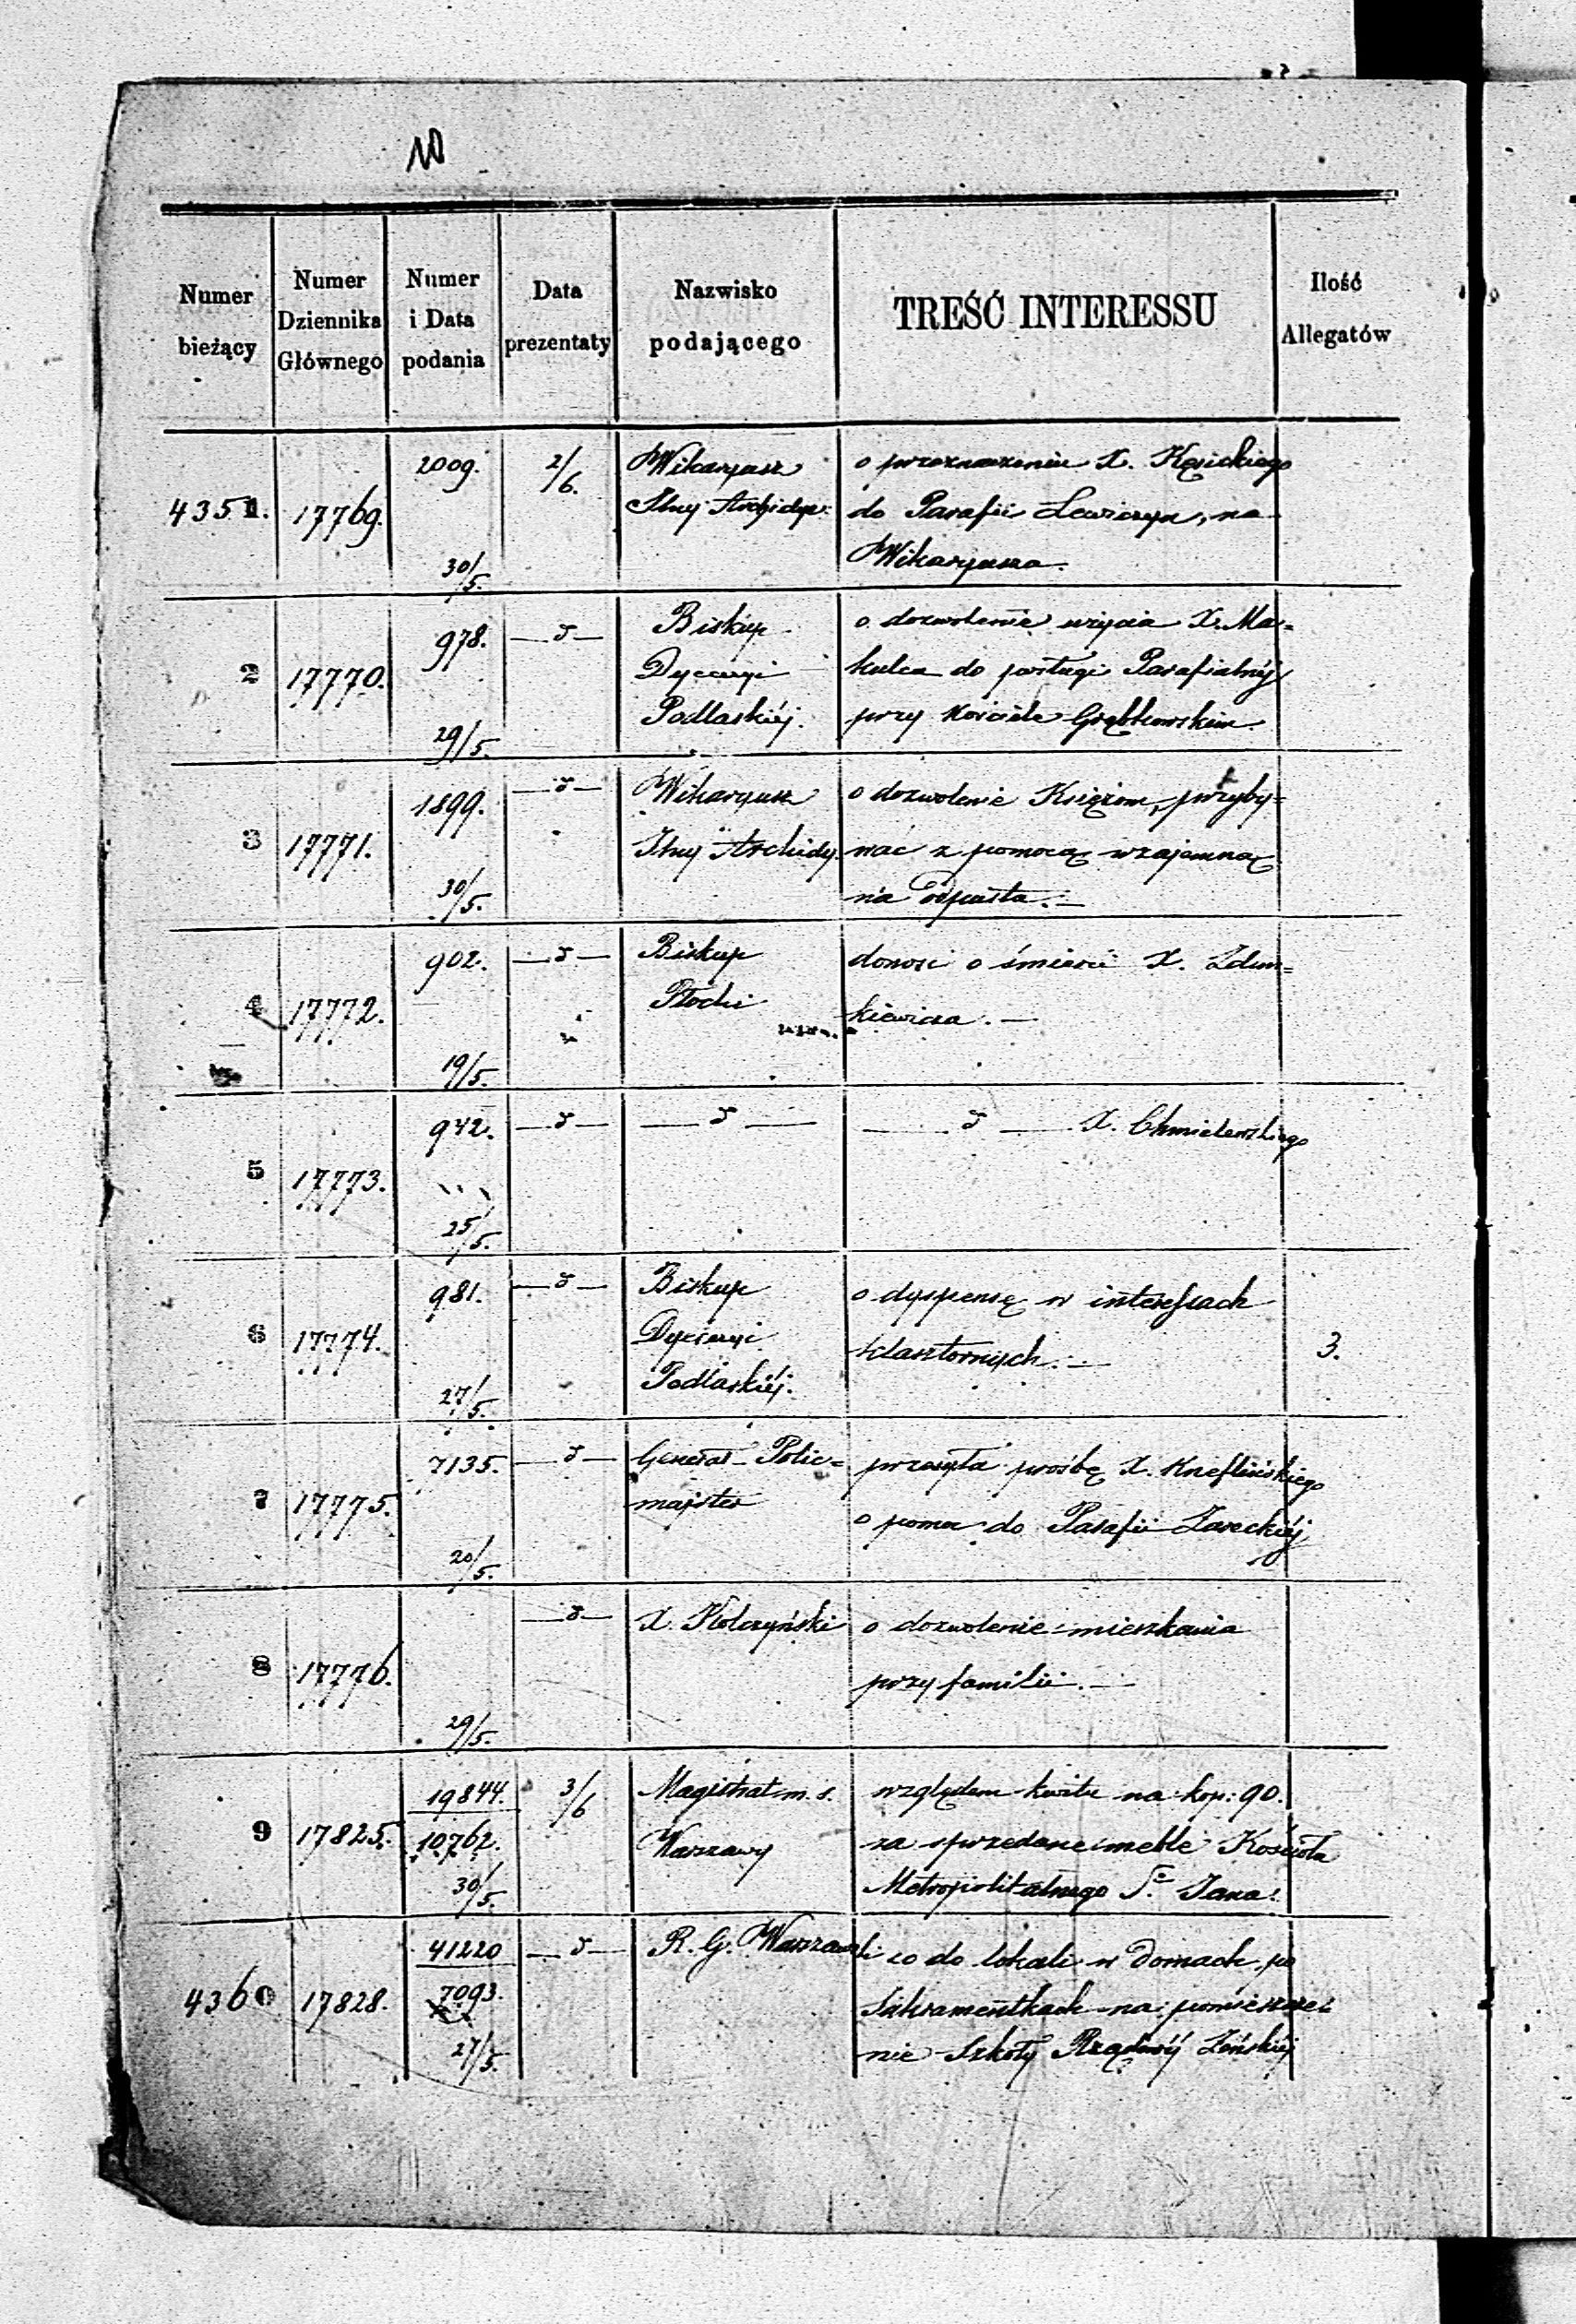 10
Numer bieżący
Numer Dziennika Głównego
Numer i Data podania
Data prezentaty
Nazwisko podającego
TREŚĆ INTERESSU
Ilość Allegatów
4351. 17769. 2009. 30/5. 2/6.
Wikaryusz
Jlny Archidye:
o przeznaczenie X. Kęsickiego
do Parafii Lewiczyn, na
Wikaryusza.
2 17770. 978. 29/5. — d —
Biskup
Dyecezyi
Podlaskiéj.
o dozwolenie użycia X. Ma=
kulca do posługi Parafialnéj
przy Kościele Grębkowskim.
3 17771. 1899. 30/5. — d —
Wikaryusz
Jlny Archidy.
o dozwolenie Księżom, przyby=
wać z pomocą wzajemną
na Odpusta. —
4 17772. 902. 19/5. — d —
Biskup
Płocki
donosi o śmierci X. Zdun=
kiewicza. —
5 17773. 942. 25/5. — d — — d — — d — X. Chmielewskiego
6 17774. 981. 27/5. — d —
Biskup
Dyecezyi
Podlaskiéj.
o dyspensę w interessach
klasztornych. — 3.
7 17775. 7135. 20/5. — d —
Generał Polic=
majster
przesyła prośbę X. Kneflińskiego
o pomoc do Parafii Zareckiéj
8 17776. 29/5. — d —
X. Kolczyński
o dozwolenie mieszkania
przy familii. —
9 17825. 19844. 10762. 30/5. 3/6
Magistrat m. s.
Warszawy
względem kwitu na kop: 90.
za sprzedane meble Kościoła
Metropolitalnego Sgo Jana.
4360 17828. 41220 7093. 27/5. — d —
R. G. Warszawski
co do lokali w Domach po
Sakramentkach na pomieszcze=
nie Szkoły Rządowéj Żeńskiéj